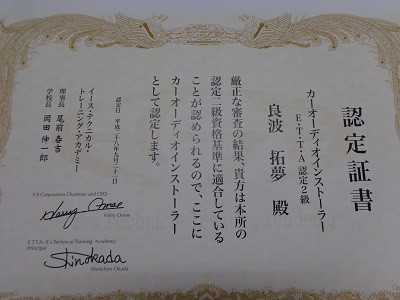 認定証書
カーオーディオインストーラー
E・T・T・A 認定2級
良波 拓夢 殿
厳正な審査の結果、貴方は本所の
認定二級資格基準に適合している
ことが認められるので、ここに
カーオーディオインストーラー
として認定します。
認定日 平成二十八年九月二十一日
イース・テクニカル・
トレーニング・アカデミー
理事長 尾前 春吉
学校長 岡田 伸一郎
E:S Corporation Chairman and CEO
Harry Omae
E.T.T.A (E:s Technical Training Academy)
Principal
Shinokada
Shinichiro Okada